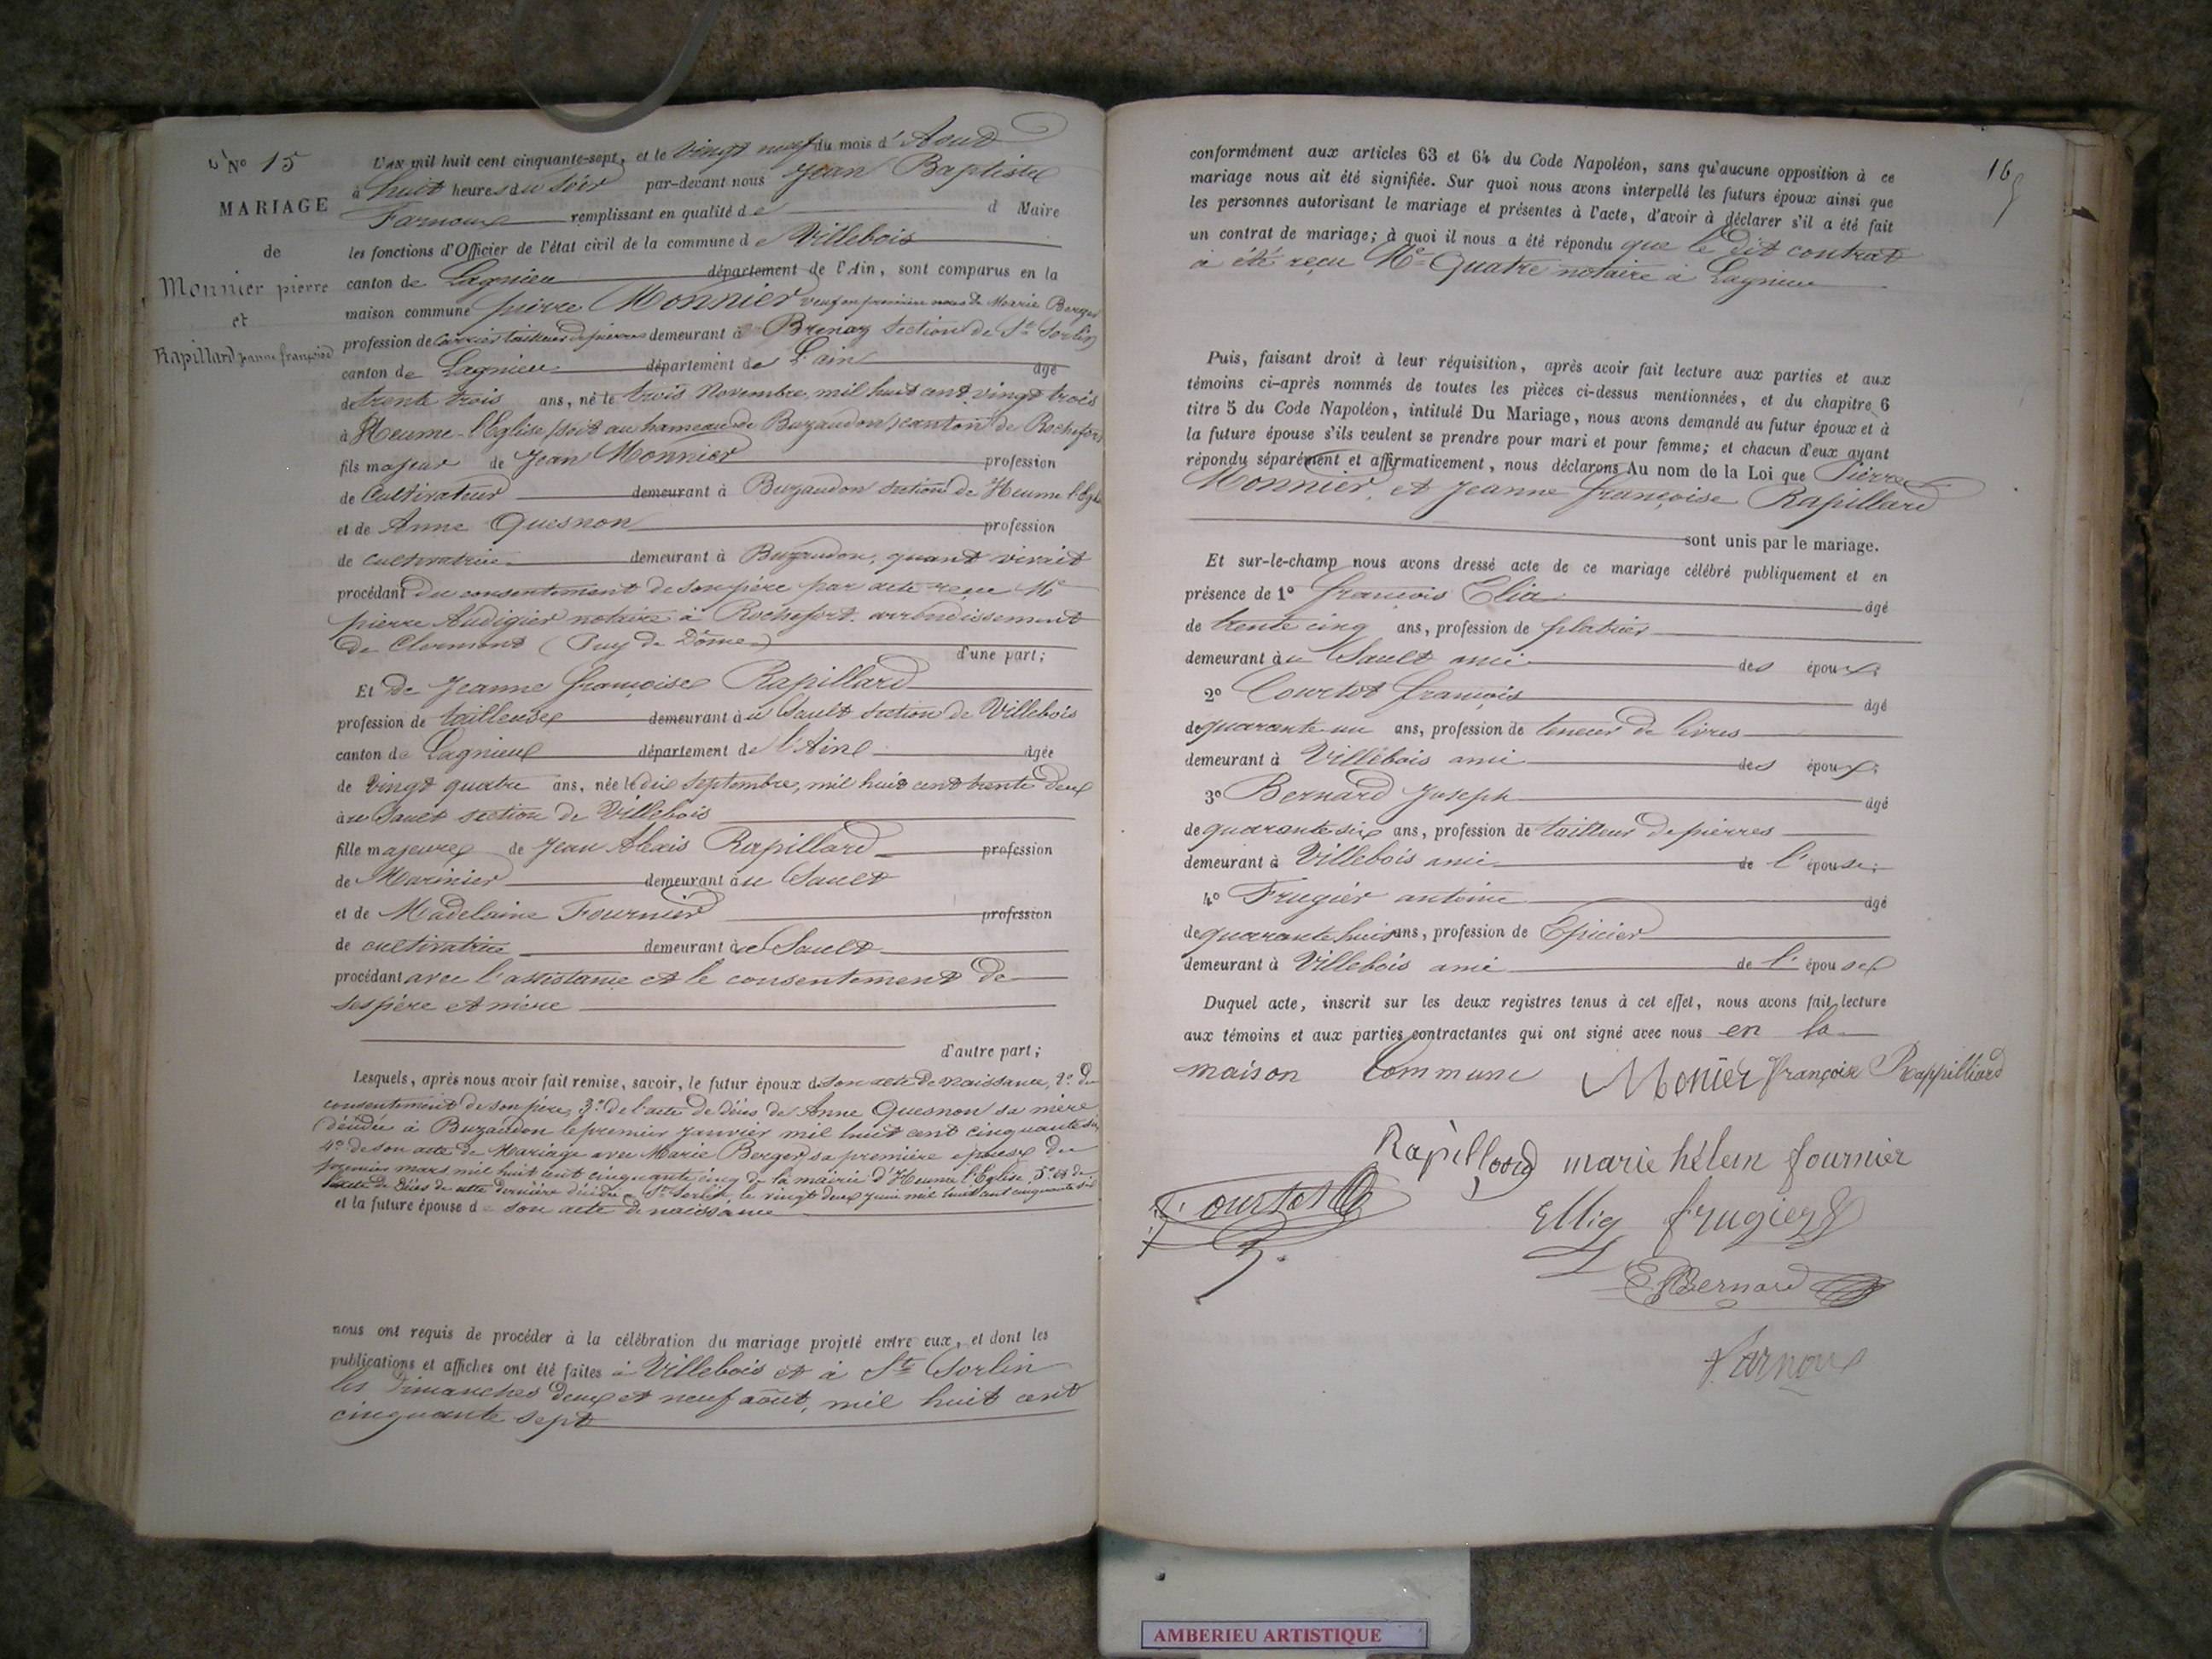 No 15
MARIAGE
de
Monnier pierre
et
Rapillard jeanne françoise
L'AN mil huit cent cinquante-sept, et le vingt neuf du mois d'Aout
à huit heures du soir par-devant nous Jean Baptiste
Farnoux remplissant en qualité de d Maire
les fonctions d'Officier de l'état civil de la commune de Villebois
canton de Lagnieu département de l'Ain, sont comparus en la
maison commune pierre Monnier veuf en première noces de Marie Berger
profession de Carrier tailleur de pierres demeurant à Brenaz section de St Sorlin
canton de Lagnieu département de L'ain âgé
de trente trois ans, né le trois Novembre, mil huit cent vingt trois
à Heume-l'Eglise (soit au hameau de Buzaudon) canton de Rochefort
fils majeur de Jean Monnier profession
de Cultivateur demeurant à Buzaudon section de Heume l'Eglise
et de Anne Quesnon profession
de cultivatrice demeurant à Buzaudon, quant vivait
procédant du consentement de son père par acte reçue Me
pierre Audigier notaire à Rochefort arrondissement
de Clermont (Puy de Dôme)
d'une part;
Et de Jeanne françoise Rapillard
profession de tailleuse demeurant au Sault section de Villebois
canton de Lagnieux département de l'Ain âgée
de vingt quatre ans, née le dix septembre, mil huit cent trente deux
à au Sault section de Villebois
fille majeure de Jean Alexis Rapillard profession
de Marinier demeurant au Sault
et de Madelaine Fournier profession
de cultivatrice demeurant au Sault
procédant avec l'assistance et le consentement de
ses père et mère
d'autre part;
Lesquels, après nous avoir fait remise, savoir, le futur époux de son acte de naissance, 2o du
consentement de son père, 3o de l'acte de décès de Anne Quesnon sa mère
décédée à Buzaudon le premier janvier mil huit cent cinquante six
4o de son acte de Mariage avec Marie Berger sa première epouse du
premier mars mil huit cent cinquante cinq de la mairie d'Heume l'Eglise, 5o et de
l'acte de décès de cette dernière décédée à St Sorlin, le vingt deux juin mil huit cent cinquante six
et la future épouse de son acte de naissance
nous ont requis de procéder à la célébration du mariage projeté entre eux, et dont les
publications et affiches ont été faites à Villebois et à St Sorlin
les Dimanches deux et neuf août, mil huit cent
cinquante sept
16
conformément aux articles 63 et 64 du Code Napoléon, sans qu'aucune opposition à ce
mariage nous ait été signifiée. Sur quoi nous avons interpellé les futurs époux ainsi que
les personnes autorisant le mariage et présentes à l'acte, d'avoir à déclarer s'il a été fait
un contrat de mariage; à quoi il nous a été répondu que le dit contrat
a été reçu Me Quatre notaire à Lagnieu
Puis, faisant droit à leur réquisition, après avoir fait lecture aux parties et aux
témoins ci-après nommés de toutes les pièces ci-dessus mentionnées, et du chapitre 6
titre 5 du Code Napoléon, intitulé Du Mariage, nous avons demandé au futur époux et à
la future épouse s'ils veulent se prendre pour mari et pour femme; et chacun d'eux ayant
répondu séparément et affirmativement, nous déclarons Au nom de la Loi que Pierre
Monnier, et Jeanne françoise Rapillard
sont unis par le mariage.
Et sur-le-champ nous avons dressé acte de ce mariage célébré publiquement et en
présence de 1o françois Elia âgé
de trente cinq ans, profession de platrier
demeurant au Sault ami des époux;
2o Courtot françois âgé
de quarante un ans, profession de teneur de livres
demeurant à Villebois ami des époux;
3o Bernard Joseph âgé
de quarante six ans, profession de tailleur de pierres
demeurant à Villebois ami de l'épouse;
4o Frugier antoine âgé
de quarante huit ans, profession de Epicier
demeurant à Villebois ami de l'épouse
Duquel acte, inscrit sur les deux registres tenus à cet effet, nous avons fait lecture
aux témoins et aux parties contractantes qui ont signé avec nous en la
maison Commune Monier françoise Rappilliard
Rapillard marie hélein fournier
Courtot Ellig frugier
Bernard
Farnoux
AMBERIEU ARTISTIQUE